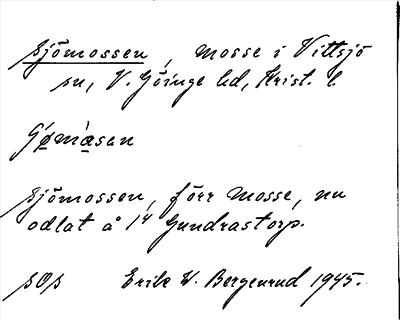 Sjömossen, mosse i Vittsjö
sn, V. Göinge hd, Krist. l
Sjömossen, förr mosse, nu
odlat å 1⁴ Gundrastorp.
SOS Erik W. Bergenrud 1945.